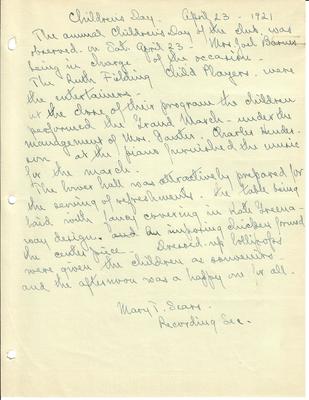 Children's Day. April 23 - 1921
The annual Children's Day of the club, was
observed on Sat. April 23 - Mrs. Joel Barnes
being in charge of the occasion.
The Ruth Fielding Child Players, were
the entertainers -
at the close of their program the children
performed the Grand March - under the
management of Mrs. Charles Hender-
son, at the piano furnished the music
for the march.
The lower hall was attractively prepared for
the serving of refreshments. The table being
laid with fancy covering in Kate Greena-
way design. and an imposing chicken formed
the center piece - Dressed-up lollipops
were given the children as souvenirs -
and the afternoon was a happy one for all.
Mary T. Sears.
Recording Sec.